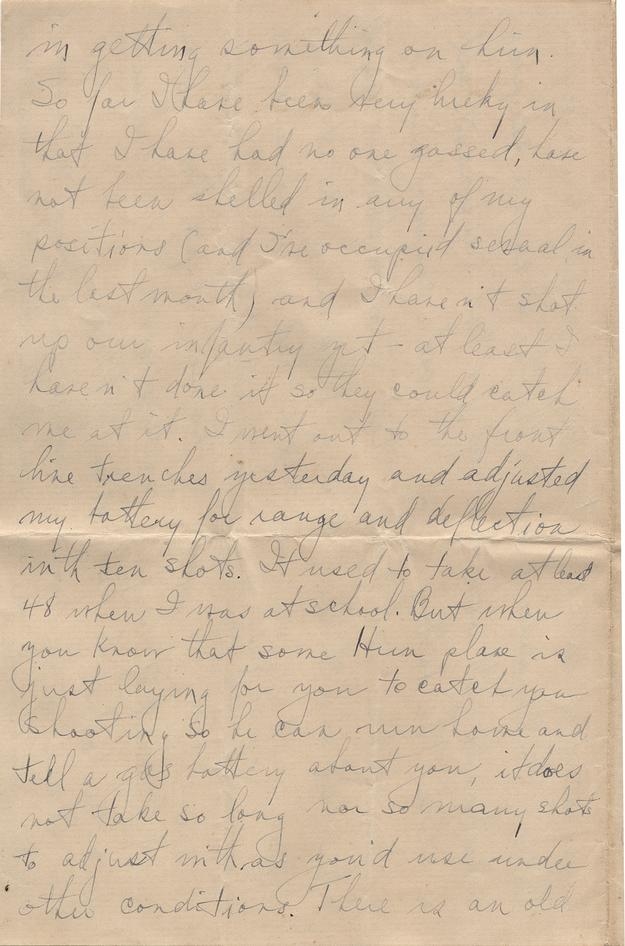 in getting something on him.
So far I have been very lucky in
that I have had no one gassed, have
not been shelled in any of my
positions (and I've occupied several in
the last month) and I haven't shot
up our infantry yet - at least I
haven't done it so they could catch
me at it. I went out to the front
line trenches yesterday and adjusted
my battery for range and deflection
with ten shots. It used to take at least
48 when I was at school. But when
you know that some Hun plane is
just laying for you to catch you
shooting so he can run home and
tell a gas battery about you, it does
not take so long nor so many shots
to adjust with as you'd use under
other conditions. There is an old